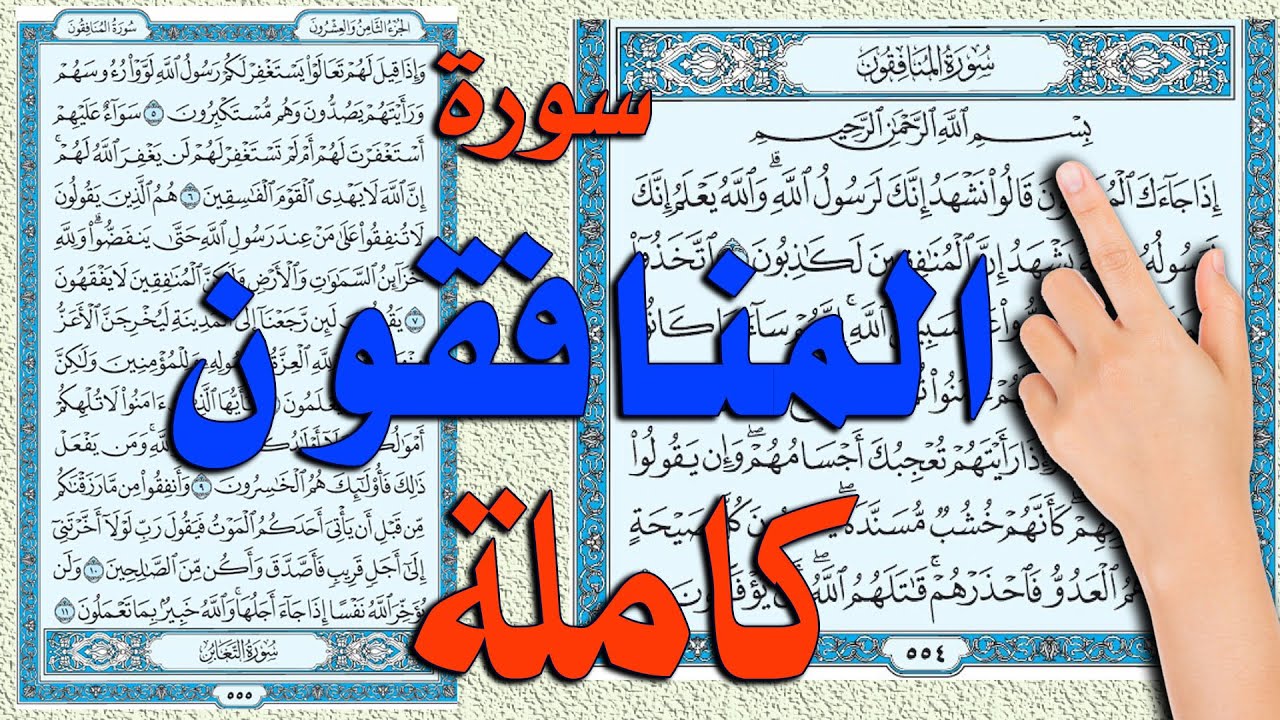 سورة
المنافقون
كاملة
سُورَةُ المُنَافِقُونَ
بِسْمِ ٱللَّهِ ٱلرَّحْمَٰنِ ٱلرَّحِيمِ
إِذَا جَآءَكَ قَالُوا۟ نَشْهَدُ إِنَّكَ لَرَسُولُ ٱللَّهِ ۗ وَٱللَّهُ يَعْلَمُ إِنَّكَ
يَشْهَدُ إِنَّ ٱلْمُنَٰفِقِينَ لَكَٰذِبُونَ ٱتَّخَذُوٓا۟
ٱللَّهِ ۚ إِنَّهُمْ سَآءَ كَانُوا۟
رَأَيْتَهُمْ تُعْجِبُكَ أَجْسَامُهُمْ ۖ وَإِن يَقُولُوا۟
كَأَنَّهُمْ خُشُبٌ مُّسَنَّدَةٌ ۖ صَيْحَةٍ
ٱلْعَدُوُّ فَٱحْذَرْهُمْ ۚ قَٰتَلَهُمُ ٱللَّهُ ۖ أَنَّىٰ يُؤْفَكُونَ
٥٥٤
الجُزْءُ الثَّامِنُ وَالعِشْرُونَ
سُورَةُ المُنَافِقُونَ
وَإِذَا قِيلَ لَهُمْ تَعَالَوْا۟ يَسْتَغْفِرْ لَكُمْ رَسُولُ ٱللَّهِ لَوَّوْا۟ رُءُوسَهُمْ
وَرَأَيْتَهُمْ يَصُدُّونَ وَهُم مُّسْتَكْبِرُونَ ٥ سَوَآءٌ عَلَيْهِمْ
أَسْتَغْفَرْتَ لَهُمْ أَمْ لَمْ تَسْتَغْفِرْ لَهُمْ لَن يَغْفِرَ ٱللَّهُ لَهُمْ ۚ
إِنَّ ٱللَّهَ لَا يَهْدِى ٱلْقَوْمَ ٱلْفَٰسِقِينَ ٦ هُمُ ٱلَّذِينَ يَقُولُونَ
لَا تُنفِقُوا۟ عَلَىٰ مَنْ عِندَ رَسُولِ ٱللَّهِ حَتَّىٰ يَنفَضُّوا۟ ۗ وَلِلَّهِ
خَزَآئِنُ ٱلسَّمَٰوَٰتِ وَٱلْأَرْضِ ٱلْمُنَٰفِقِينَ لَا يَفْقَهُونَ
٧ لَئِن رَّجَعْنَآ إِلَى ٱلْمَدِينَةِ لَيُخْرِجَنَّ ٱلْأَعَزُّ
ٱلْعِزَّةُ وَلِلْمُؤْمِنِينَ وَلَٰكِنَّ
ءَامَنُوا۟ لَا تُلْهِكُمْ
وَمَن يَفْعَلْ
ذَٰلِكَ فَأُو۟لَٰٓئِكَ هُمُ ٱلْخَٰسِرُونَ ٩ وَأَنفِقُوا۟ مِن مَّا رَزَقْنَٰكُم
مِّن قَبْلِ أَن يَأْتِىَ أَحَدَكُمُ ٱلْمَوْتُ فَيَقُولَ رَبِّ لَوْلَآ أَخَّرْتَنِىٓ
إِلَىٰٓ أَجَلٍ قَرِيبٍ فَأَصَّدَّقَ وَأَكُن مِّنَ ٱلصَّٰلِحِينَ ١٠ وَلَن
يُؤَخِّرَ ٱللَّهُ نَفْسًا إِذَا جَآءَ أَجَلُهَا ۚ وَٱللَّهُ خَبِيرٌۢ بِمَا تَعْمَلُونَ ١١
سُورَةُ التَّغَابُنِ
٥٥٥